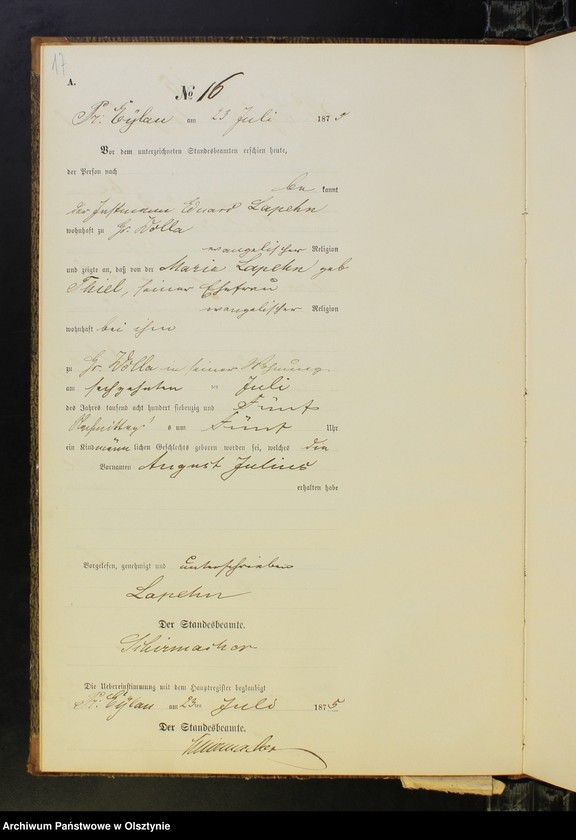 17
A.
№ 16
Pr. Eylau am 23 Juli 1875
Vor dem unterzeichneten Standesbeamten erschien heute,
der Person nach
be kannt
der Instmann Eduard Lapehn
wohnhaft zu Gr. Wolla
evangelischer Religion
und zeigte an, daß von der Marie Lapehn geb
Thiel, seiner Ehefrau
evangelischer Religion
wohnhaft bei ihm
zu Gr. Wolla in seiner Wohnung
am sechzehnten Juli
des Jahres tausend acht hundert siebenzig und Fünf
Nachmittags um Fünf Uhr
ein Kind männ lichen Geschlechts geboren worden sei, welches den
Vornamen August Julius
erhalten habe
Vorgelesen, genehmigt und unterschrieben
Lapehn
Der Standesbeamte.
Schirmacher
Die Uebereinstimmung mit dem Hauptregister beglaubigt
Pr. Eylau am 23ten Juli 1875
Der Standesbeamte.
Schirmacher
Archiwum Państwowe w Olsztynie